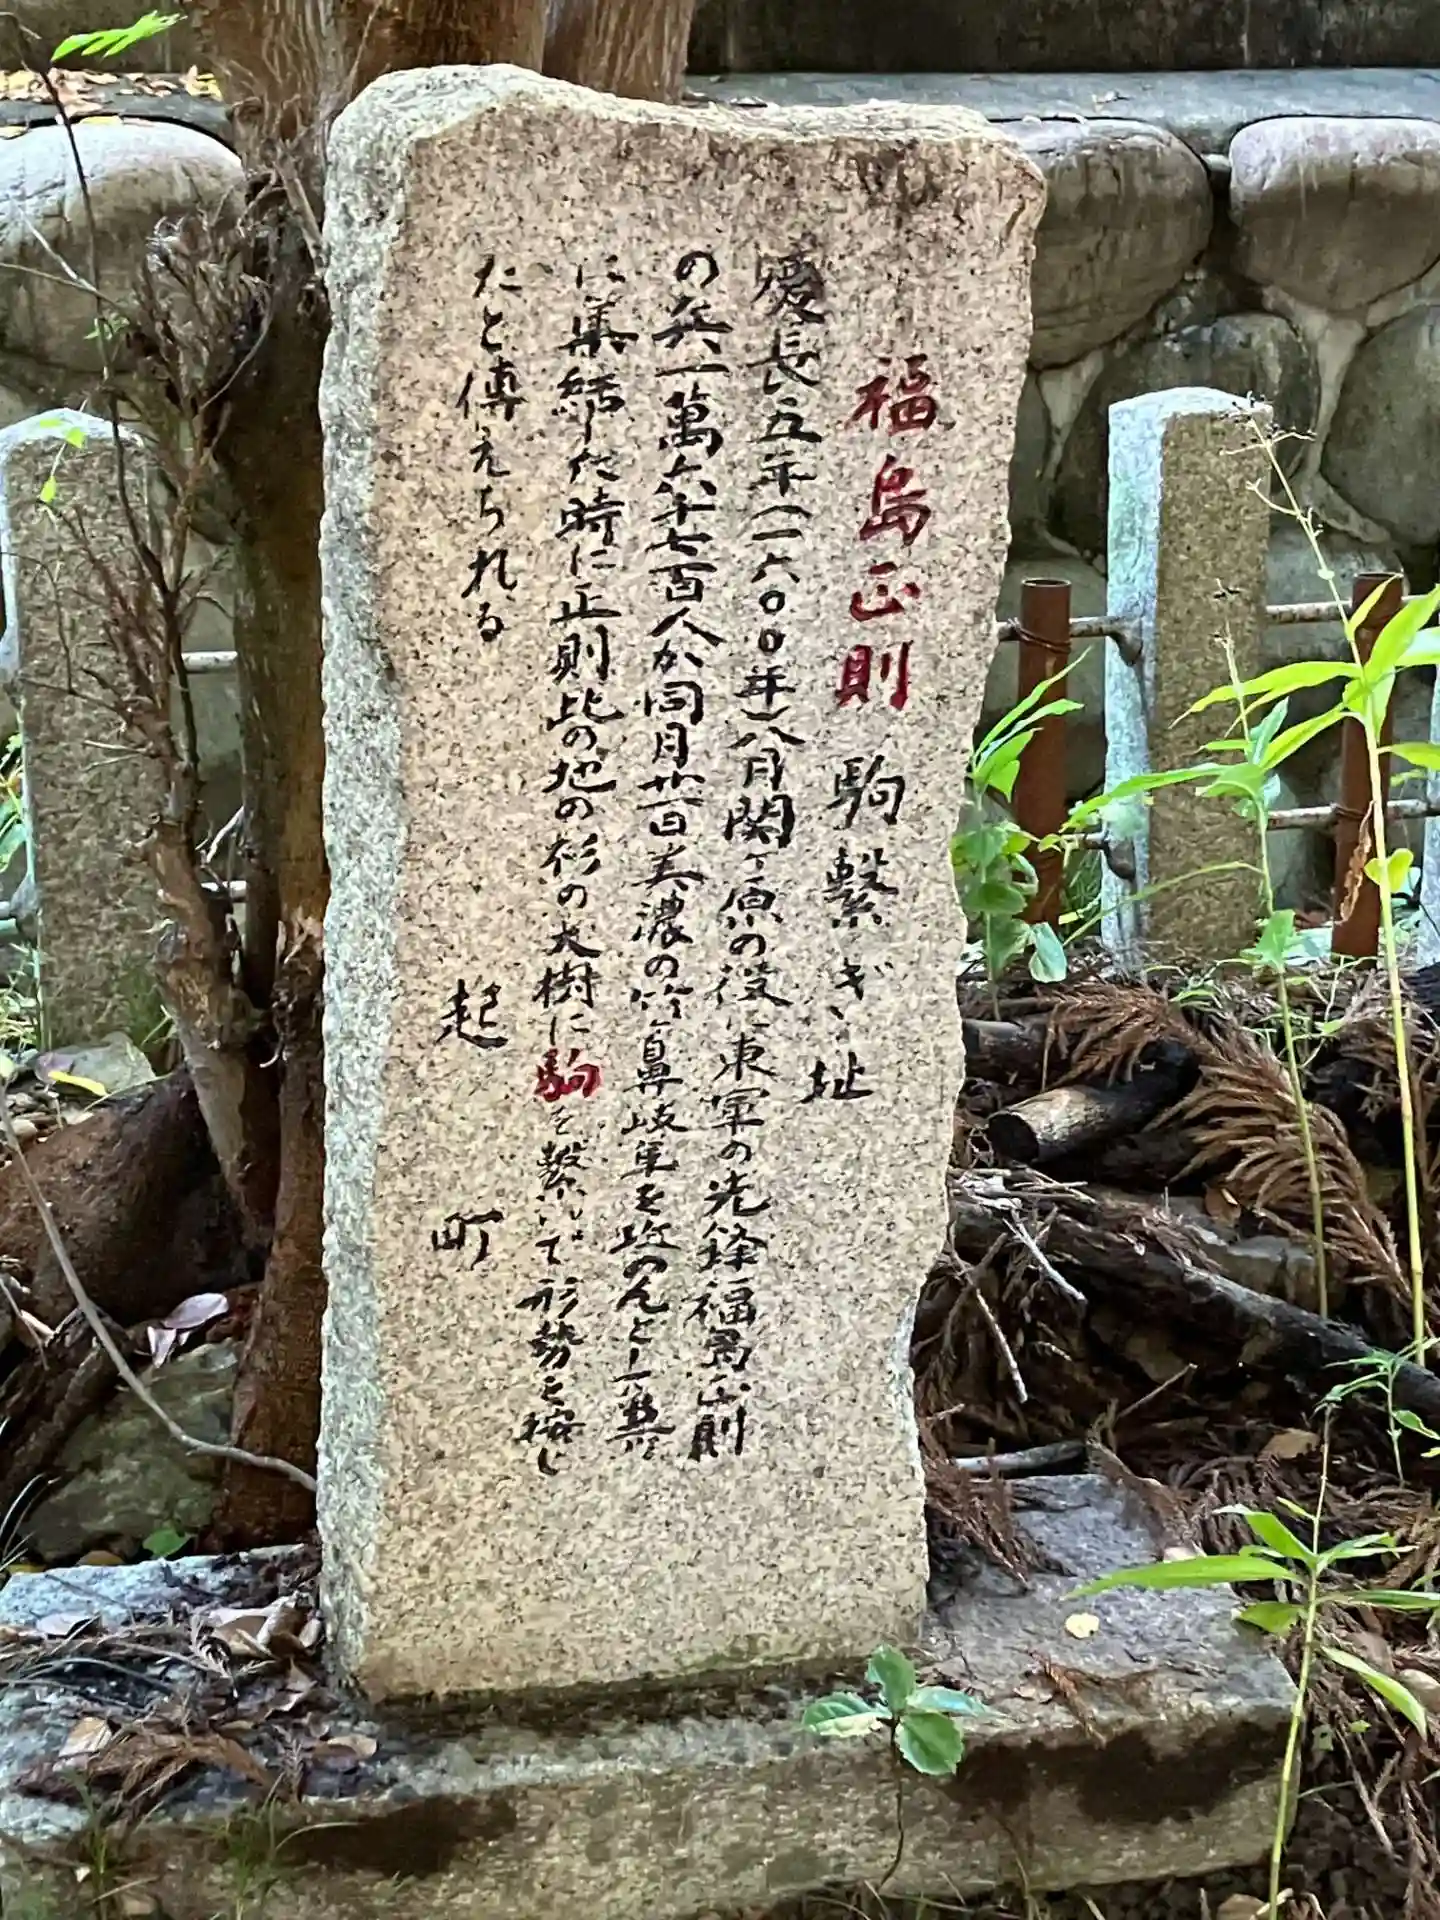 福島正則駒繋ぎ址
慶長五年(一六〇〇年)八月関ヶ原の役に東軍の先鋒福島正則
の兵一萬六千七百人が同月廿一日美濃の竹ヶ鼻岐阜を攻めんとし兹
に集結した時に正則此の地の杉の大樹に駒を繋いで形勢を按じ
たと傳えられる
起町